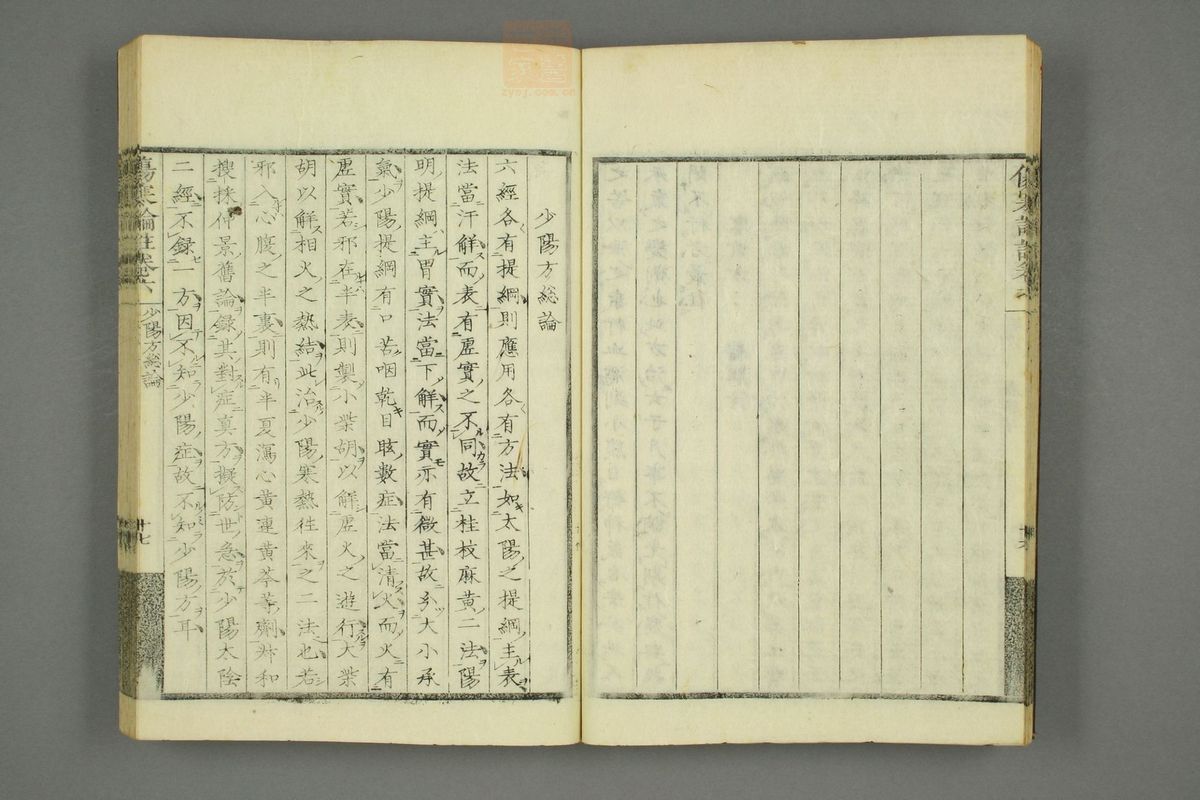 少陽方総論
六經各有提綱則應用各有方法如太陽之提綱主表
法當汗解而表有虛實之不同故立桂枝麻黄二法陽
明提綱主胃實法當下解而實亦有微甚故分大小承
氣少陽提綱有口苦咽乾目眩數症法當清火而火有
虛實若邪在半表則製小柴胡以解虛火之遊行大柴
胡以解相火之熱結此治少陽寒熱徃來之二法也若
邪入心腹之半裏則有半夏瀉心黄連黄芩等劑叔和
搜採仲景舊論録其對症真方擬防世急於少陽太陰
二經不録一方因不知少陽症故不知少陽方耳
傷寒論註卷六
少陽方総論
十七